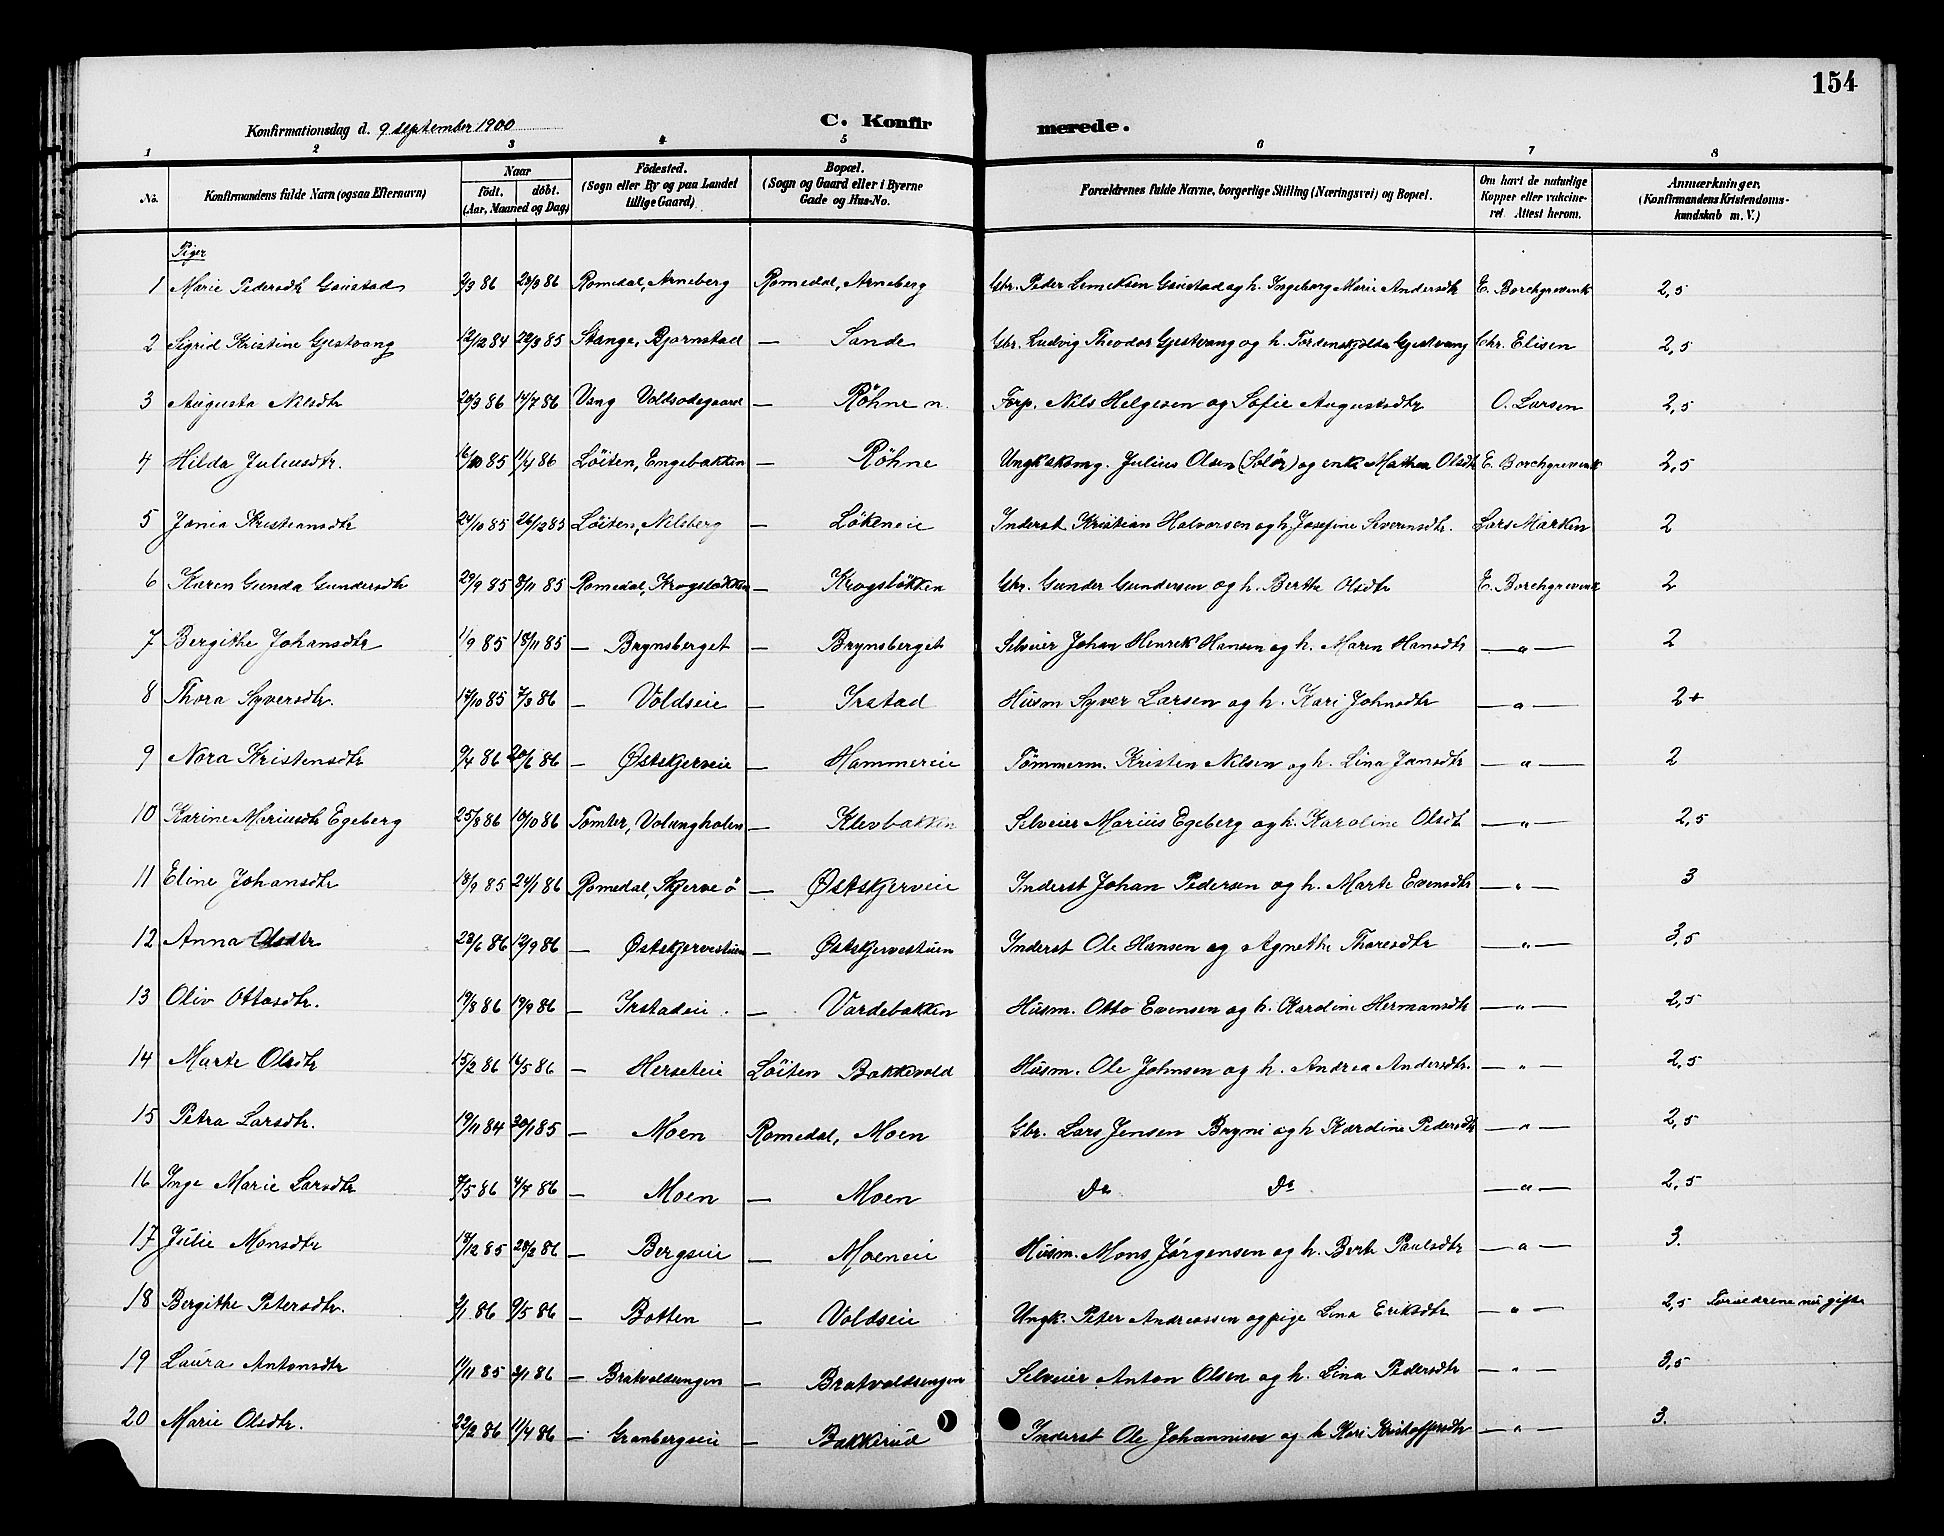 154
Konfirmationsdag d. 9 september 1900 C. Konfirmerede.
1 2 3 4 5 6 7 8
No. Konfirmandens fulde Navn (ogsaa Efternavn) Naar födt. döbt. (Aar, Maaned og Dag) Födested. (Sogn eller By og paa Landet tillige Gaard) Bopæl. (Sogn og Gaard eller i Byerne Gade og Hus-No. Forældrenes fulde Navne, borgerlige Stilling (Næringsvei) og Bopæl. Om havt de naturlige Kopper eller vakcineret Attest herom. Anmærkninger. (Konfirmandens Kristendomskundskab m. V.)
Piger
1 Marie Pedersdtr Gaustad 86 86 Romedal, Arneberg Romedal, Arneberg Gbr. Peder Gaustad og h. Ingeborg Marie Andersdtr E. Borchgrevink 2,5
2 Sigrid Kristine Gjestvang 12/12 84 22/3 85 Stange, Bjørnstad — Sande Gbr. Ludvig Theodor Gjestvang og h. Tordenskjolda Gjestvang Chr. Elisen 2,5
3 Augusta Nilsdtr 20/3 86 14/7 86 Vang Voldsodegaard — Röhne n. Forp. Nils Helgesen og Sofie Augustsdtr O. Larsen 2,5
4 Hilda Juliusdtr. 16/10 85 11/4 86 Löiten, Engebakken — Röhne Ungk. Julius Olsen (Solör) og enke Mathea Olsdtr E. Borchgrevink 2,5
5 Jonia Kristiansdtr 24/10 85 26/12 85 Löiten, Nilsberg — Lökeneie Inderst Kristian Halvorsen og h. Josefine Severinsdtr. Lars Marken 2
6 Karen Gunda Gundersdtr 29/9 85 8/11 85 Romedal, Krogsbökken — Krogsbökken Gbr. Gunder Gundersen og h. Berthe Olsdtr E. Borchgrevink 2
7 Bergithe Johansdtr 1/9 85 18/11 85 — Brynsberget — Brynsberget Selveier Johan Henrik Hansen og h. Maren Hansdtr — " — 2
8 Thora Syversdtr. 17/10 85 7/3 86 — Voldseie — Irstad Husm Syver Larsen og h. Kari Johnsdtr — " — 2+
9 Nora Kristensdtr 9/4 86 20/6 86 — Østskjerveie — Hammereie Tømmerm. Kristen Nilsen og h. Lina Jansdtr — " — 2
10 Karine Mariusdtr Egeberg 25/8 86 10/10 86 Tomter, Volungholen — Klevbakken Selveier Marius Egeberg og h. Karoline Olsdt — " — 2,5
11 Eline Johansdtr 18/9 85 24/1 86 Romedal, Skjerve ö — Østskjerveie Inderst Johan Pedersen og h. Marte Evensdtr — " — 3
12 Anna Olsdtr 23/6 86 12/9 86 — Østskjervestuen — Østskjervestuen Inderst Ole Hansen og Agnethe Thoresdtr — " — 3,5
13 Oliv Ottosdtr. 19/8 86 19/9 86 — Irstadeie — Vardebakken Husm. Otto Evensen og h. Karoline Hermansdtr — " — 2,5
14 Marte Olsdtr 15/2 86 16/5 86 — Herseteie Löiten Bakkevold Husm. Ole Johnsen og h. Andrea Andersdtr. — " — 2,5
15 Petra Larsdtr. 19/11 84 30/1 85 — Moen Romedal, Moen Gbr. Lars Jensen Bryni og h Karoline Pedersdtr — " — 2,5
16 Inga Marie Larsdtr 7/5 86 4/7 86 — Moen — Moen Do Do — " — 2,5
17 Julie Monsdtr 18/12 85 28/2 86 — Bergseie — Moeneie Husm. Mons Jörgensen og h. Berte Paulsdtr — " — 3.
18 Bergithe Petersdtr. 2/1 86 9/5 86 — Botten — Voldseie Ungk. Peter Andreassen og pige Lina Eriksdtr — " — 2,5 Forældrene nu gifte
19 Laura Antonsdtr 11/11 85 3/1 86 — Bratvoldsengen — Bratvoldsengen Selveier Anton Olsen og h. Lina Pedersdtr — " — 3,5
20 Marie Olsdtr. 22/2 86 11/4 86 — Granbergseie — Bakkerud Inderst Ole Johannisen og h Kari Kristoffersdtr — " — 3.